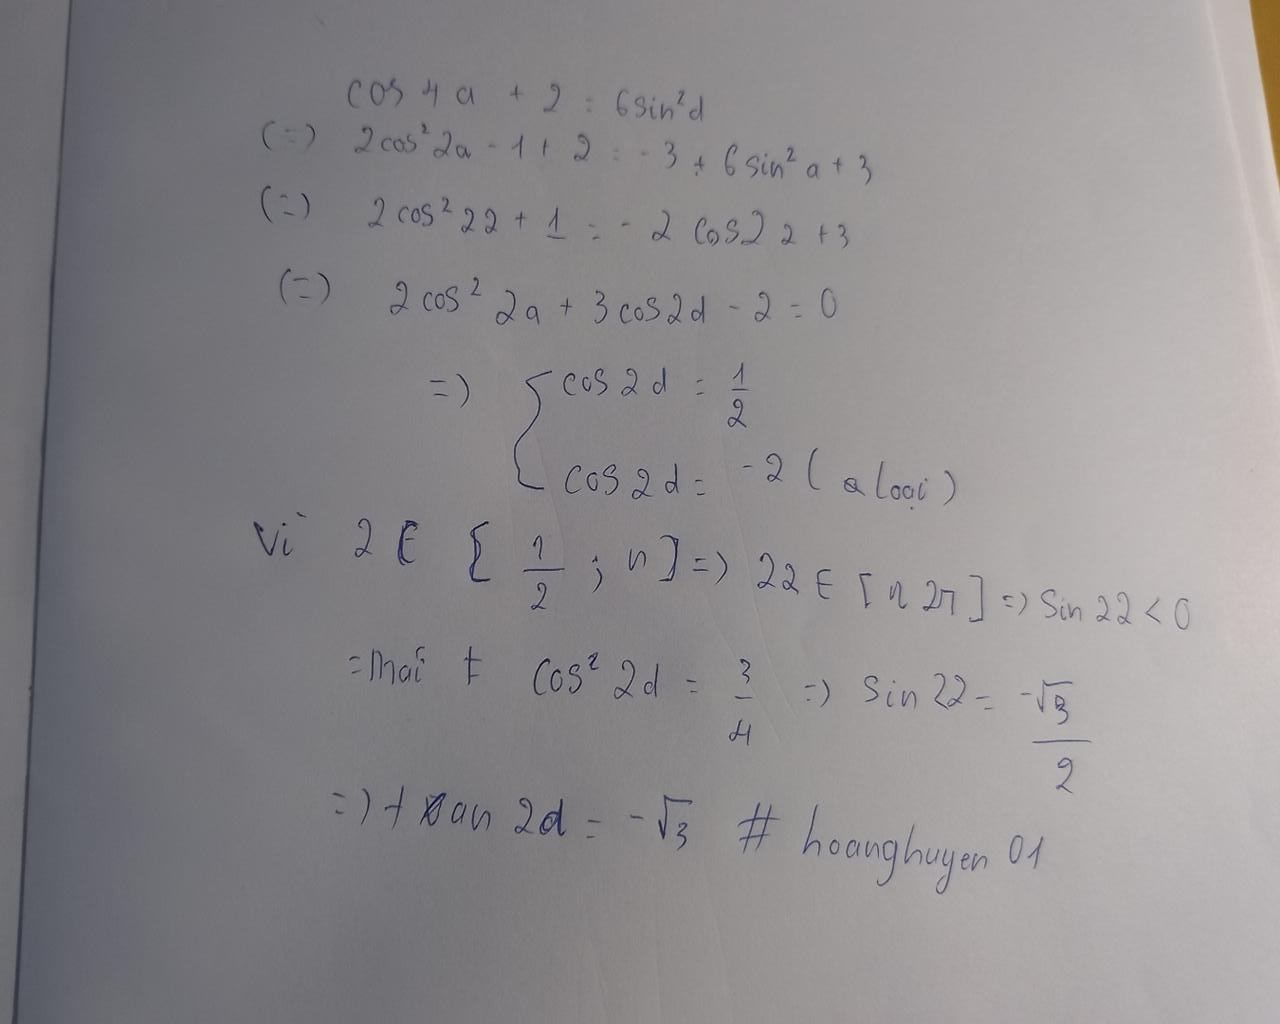 cos 4a + 2 = 6sin²d
(=) 2cos²2a - 1 + 2 = -3 + 6sin²a + 3
(=) 2cos²22 + 1 = -2 cos22 + 3
(=) 2cos²2a + 3cos2d - 2 = 0
=) { cos2d = 1/2
cos2d = -2 (a loại)
Vì 2 ∈ [1/2; n] =) 22 ∈ [n 2π] =) Sin 22 < 0
cos²2d = 3/4 =) Sin 22 = -√3/2
=) tan 2d = -√3 # hoanghuyen 01